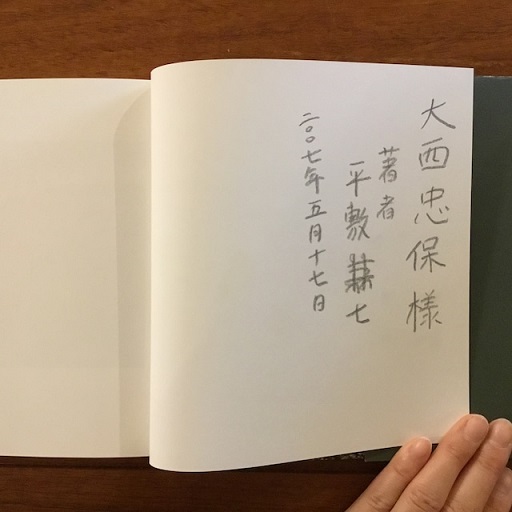 大西忠保様
著者
平敷兼七
二〇〇七年五月十七日